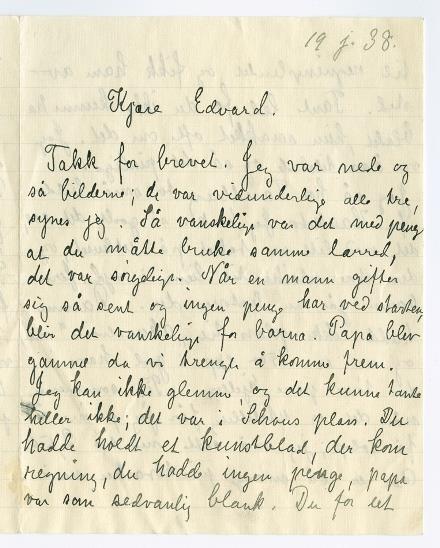 19 j. 38.
Kjære Edvard.
Takk for brevet. Jeg var nede og
så bilderne; de var vidunderlige alle tre,
synes jeg. Så vanskelige var det med penge
at du måtte bruke samme lærred,
det var sørgeligt. Når en mann gifter
sig så sent og ingen penge har ved starten
blir det vanskelige for barna. Papa blev
gammel da vi trengte å komme frem.
Jeg kan ikke glemme, og det kunne tante
heller ikke; det var i Schous plass. Du
hadde holdt et kunstblad, der kom
regning, du hadde ingen penge, papa
var som sedvanlig blank. Du for let